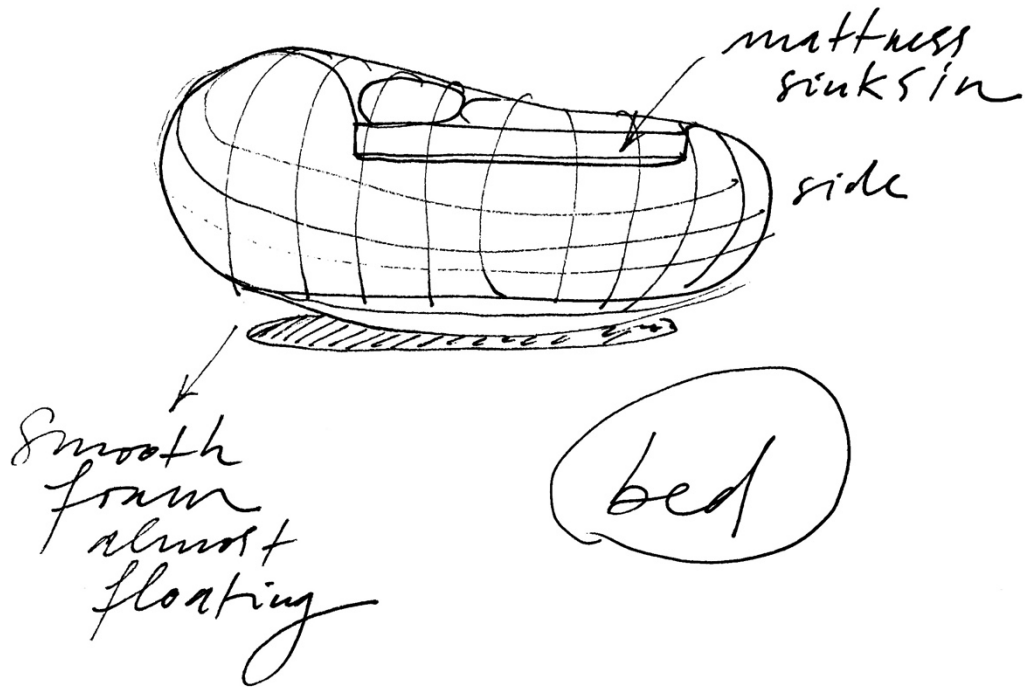 mattness
sinks in
side
smooth
foam
almost
floating
bed